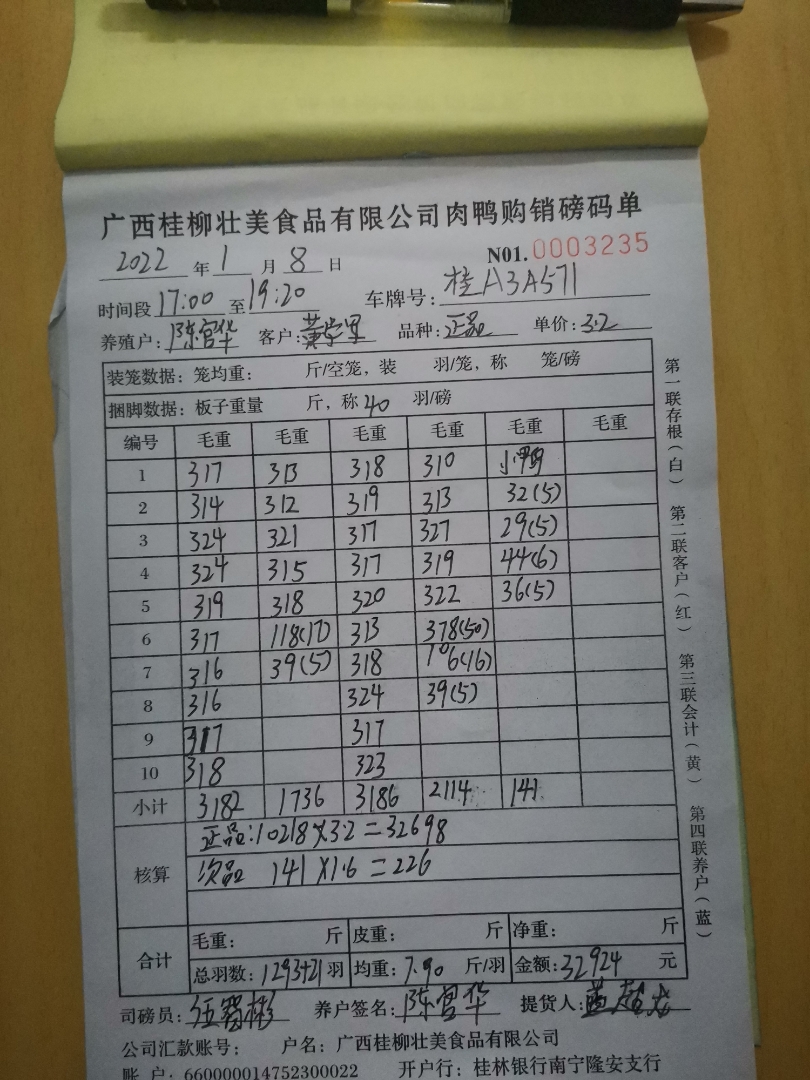 广西桂柳壮美食品有限公司肉鸭购销磅码单
2022年1月8日 N01.0003235
时间段17:00至19:20 车牌号:桂A3A571
养殖户:陈官华 客户: 品种:正品 单价:3.2
装笼数据:笼均重: 斤/空笼,装 羽/笼,称 笼/磅
捆脚数据:板子重量 斤,称40羽/磅
编号 毛重 毛重 毛重 毛重 毛重 毛重
1 317 313 318 310 小鸭
2 314 312 319 313 32(5)
3 324 321 317 327 29(5)
4 324 315 317 319 44(6)
5 319 318 320 322 36(5)
6 317 118(17) 313 378(50)
7 316 39(5) 318 106(16)
8 316 324 39(5)
9 317 317
10 318 323
小计 3182 1736 3186 2114 141
核算 正品:10218×3.2=32698
次品 141×1.6=226
合计 毛重: 斤 皮重: 斤 净重: 斤
总羽数:1293+21羽 均重:7.90斤/羽 金额:32924元
司磅员: 养户签名:陈官华 提货人:
公司汇款账号: 户名:广西桂柳壮美食品有限公司
账 户:660000014752300022 开户行:桂林银行南宁隆安支行
第一联存根(白) 第二联客户(红) 第三联会计(黄) 第四联养户(蓝)